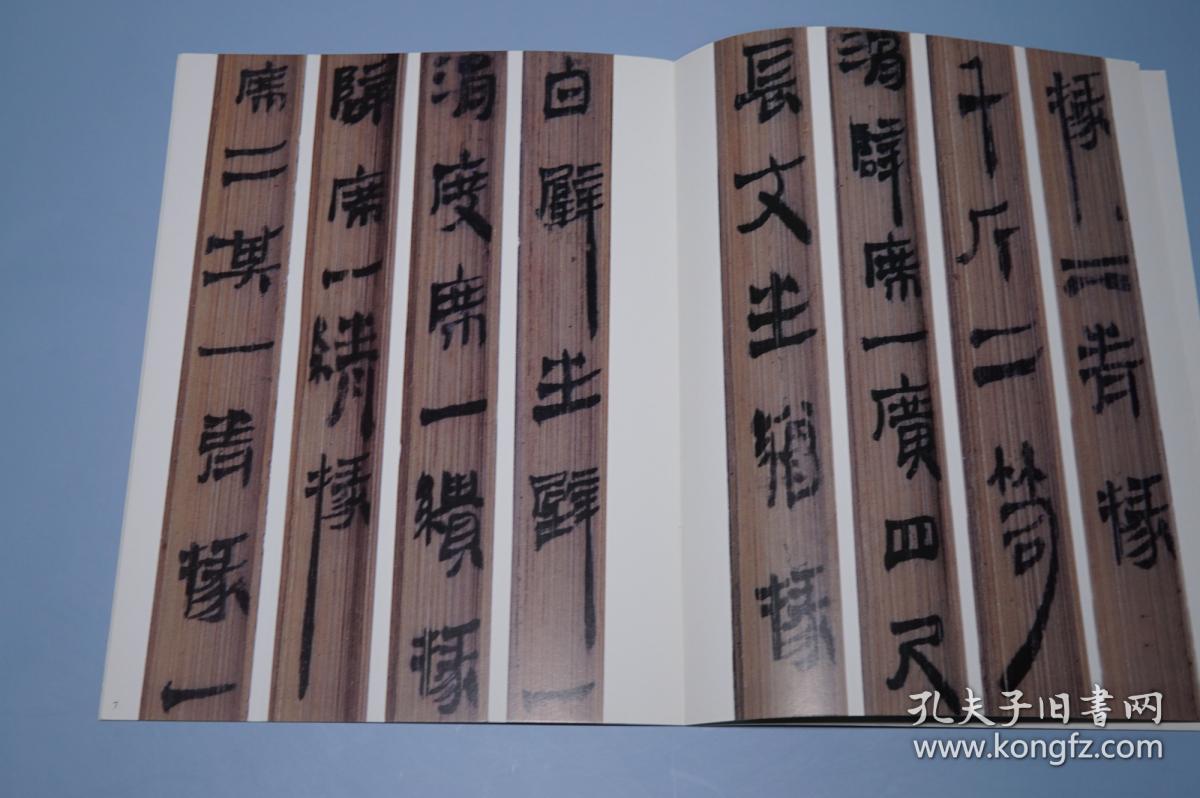 掾二青掾
千斤二笥
滑辟席一廣四尺
長丈生繒掾
白璧生璧一
滑度席一繢掾
辟席一綪掾
席二其一青掾一
7
孔夫子旧書网
www.kongfz.com